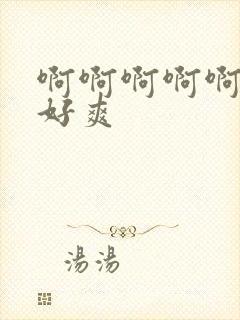 啊啊啊啊啊
好爽
湯湯